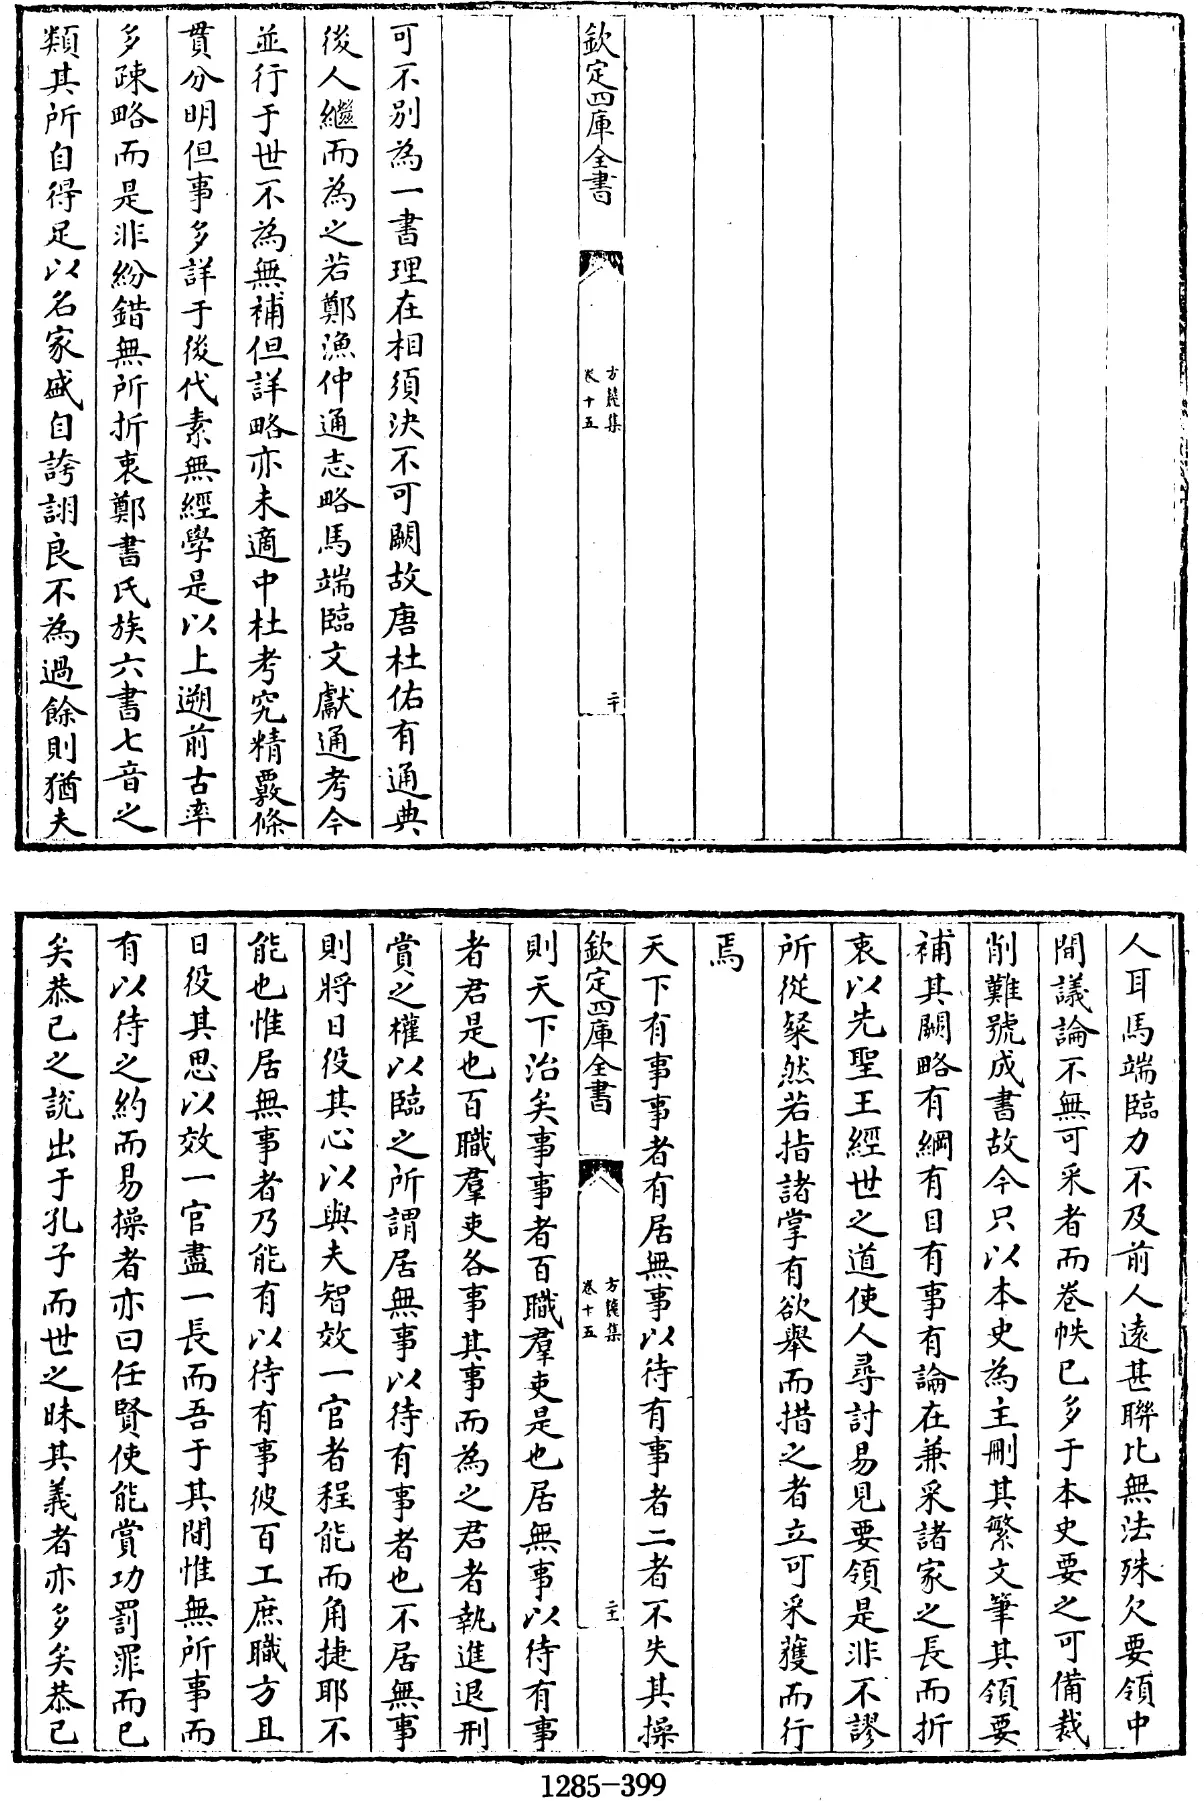 欽定四庫全書
方麓集
卷十五
二十
可不別為一書理在相須決不可闕故唐杜佑有通典
後人繼而為之若鄭漁仲通志略馬端臨文獻通考今
並行于世不為無補但詳略亦未適中杜考究精覈條
貫分明但事多詳于後代素無經學是以上遡前古率
多疎略而是非紛錯無所折衷鄭書氏族六書七音之
類其所自得足以名家盛自誇詡良不為過餘則猶夫
人耳馬端臨力不及前人遠甚聯比無法殊欠要領中
間議論不無可采者而卷帙已多于本史要之可備裁
削難號成書故今只以本史為主刪其繁文筆其領要
補其闕略有綱有目有事有論在兼采諸家之長而折
衷以先聖王經世之道使人尋討易見要領是非不謬
所從粲然若指諸掌有欲舉而措之者立可采獲而行
焉
天下有事事者有居無事以待有事者二者不失其操
欽定四庫全書
方麓集
卷十五
二十一
則天下治矣事事者百職羣吏是也居無事以待有事
者君是也百職羣吏各事其事而為之君者執進退刑
賞之權以臨之所謂居無事以待有事者也不居無事
則將日役其心以與夫智效一官者程能而角捷耶不
能也惟居無事者乃能有以待有事彼百工庶職方且
日役其思以效一官盡一長而吾于其間惟無所事而
有以待之約而易操者亦曰任賢使能賞功罰罪而已
矣恭己之說出于孔子而世之昧其義者亦多矣恭己
1285-399